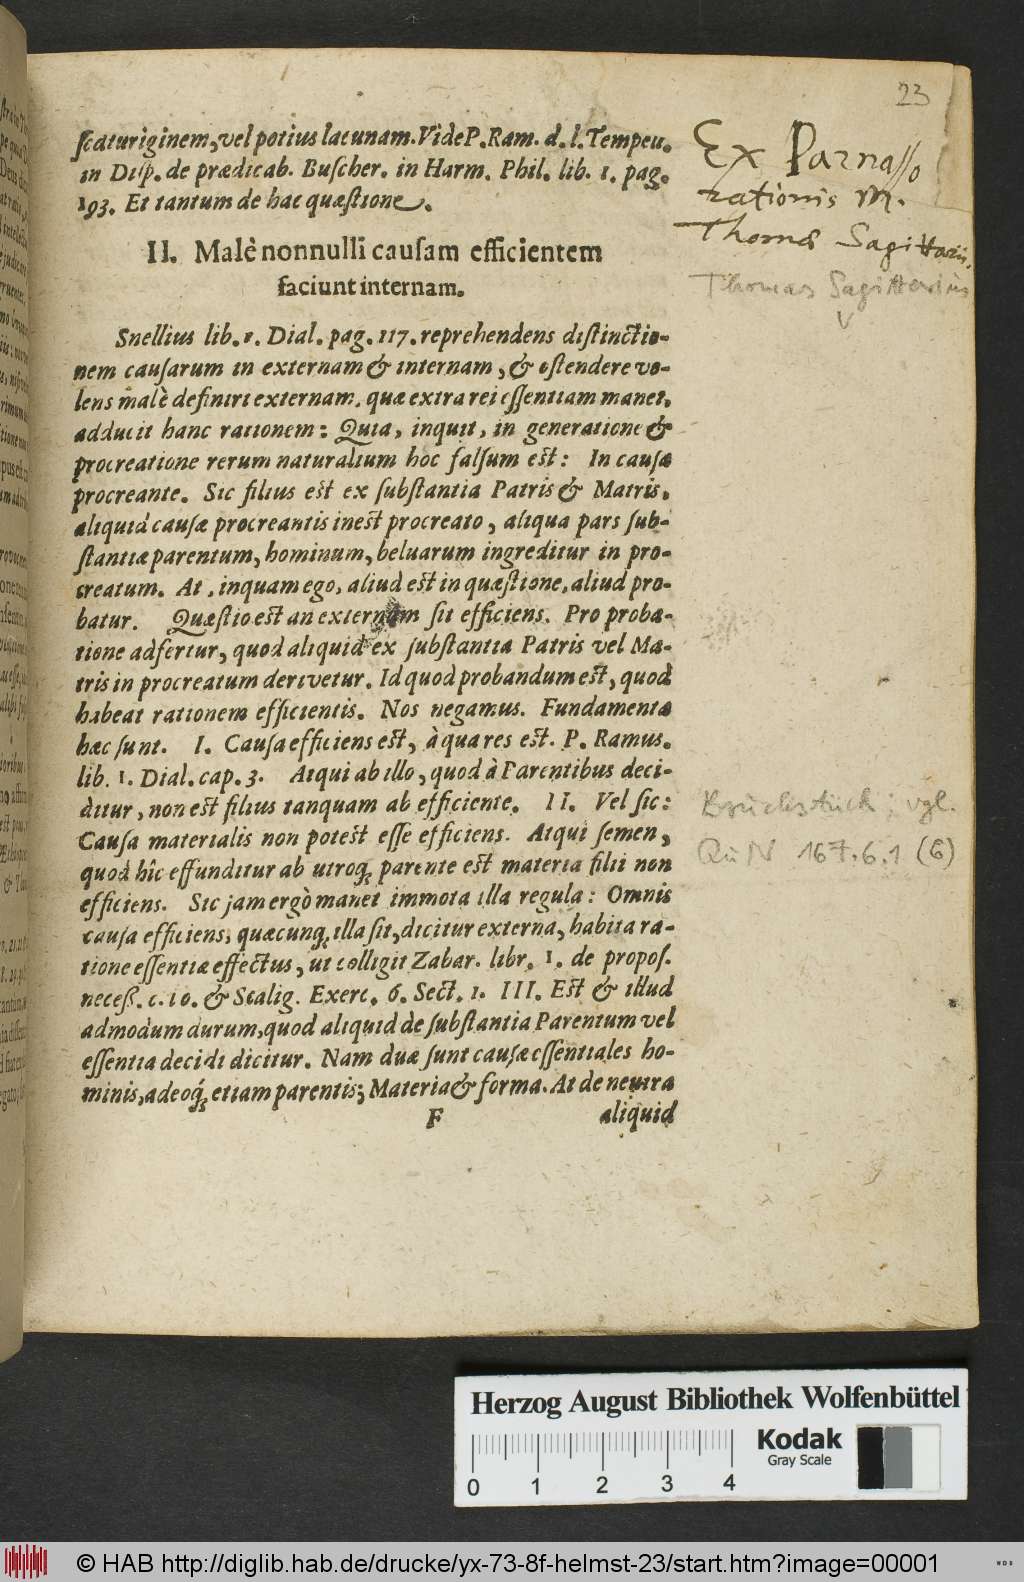 23
ſcaturiginem, vel potius lacunam. Vide P. Ram. d. l. Tempeu.
in Diſp. de prædicab. Buſcher. in Harm. Phil. lib. 1. pag.
193. Et tantum de hac quæſtione.
II. Malè nonnulli cauſam efficientem
faciunt internam.
Snellius lib. 1. Dial. pag. 117. reprehendens diſtinctio-
nem cauſarum in externam & internam, & oſtendere vo-
lens malè definiri externam, quæ extra rei eſſentiam manet,
adducit hanc rationem: Quia, inquit, in generatione &
procreatione rerum naturalium hoc falſum est: In cauſa
procreante. Sic filius est ex ſubſtantia Patris & Matris,
aliquid cauſæ procreantis inest procreato, aliqua pars ſub-
ſtantiæ parentum, hominum, beluarum ingreditur in pro-
creatum. At, inquam ego, aliud est in quæſtione, aliud pro-
batur. Quæſtio est an externam ſit efficiens. Pro proba-
tione adfertur, quod aliquid ex ſubſtantia Patris vel Ma-
tris in procreatum derivetur. Id quod probandum est, quod
habeat rationem efficientis. Nos negamus. Fundamenta
hæc ſunt. I. Cauſa efficiens est, à qua res est. P. Ramus.
lib. 1. Dial. cap. 3. Atqui ab illo, quod à Parentibus deci-
ditur, non est filius tanquam ab efficiente. II. Vel ſic:
Cauſa materialis non potest eſſe efficiens. Atqui ſemen,
quod hîc effunditur ab utroq; parente est materia filii non
efficiens. Sic jam ergò manet immota illa regula: Omnis
cauſa efficiens, quæcunq; illa ſit, dicitur externa, habita ra-
tione eſſentiæ effectus, ut colligit Zabar. libr. 1. de propoſ.
neceß. c. 10. & Scalig. Exerc. 6. Sect. 1. III. Est & illud
admodum durum, quod aliquid de ſubſtantia Parentum vel
eſſentia decidi dicitur. Nam duæ ſunt cauſæ eſſentiales ho-
minis, adeoq́; etiam parentis; Materia & forma. At de neutra
F aliquid
Ex Parnaſſo
rationis M.
Thomæ Sagittarii.
Thomas Sagittarius
Bruchstück; vgl.
QuN 167.6.1 (6)
Herzog August Bibliothek Wolfenbüttel
0 1 2 3 4
Kodak
Gray Scale
© HAB http://diglib.hab.de/drucke/yx-73-8f-helmst-23/start.htm?image=00001